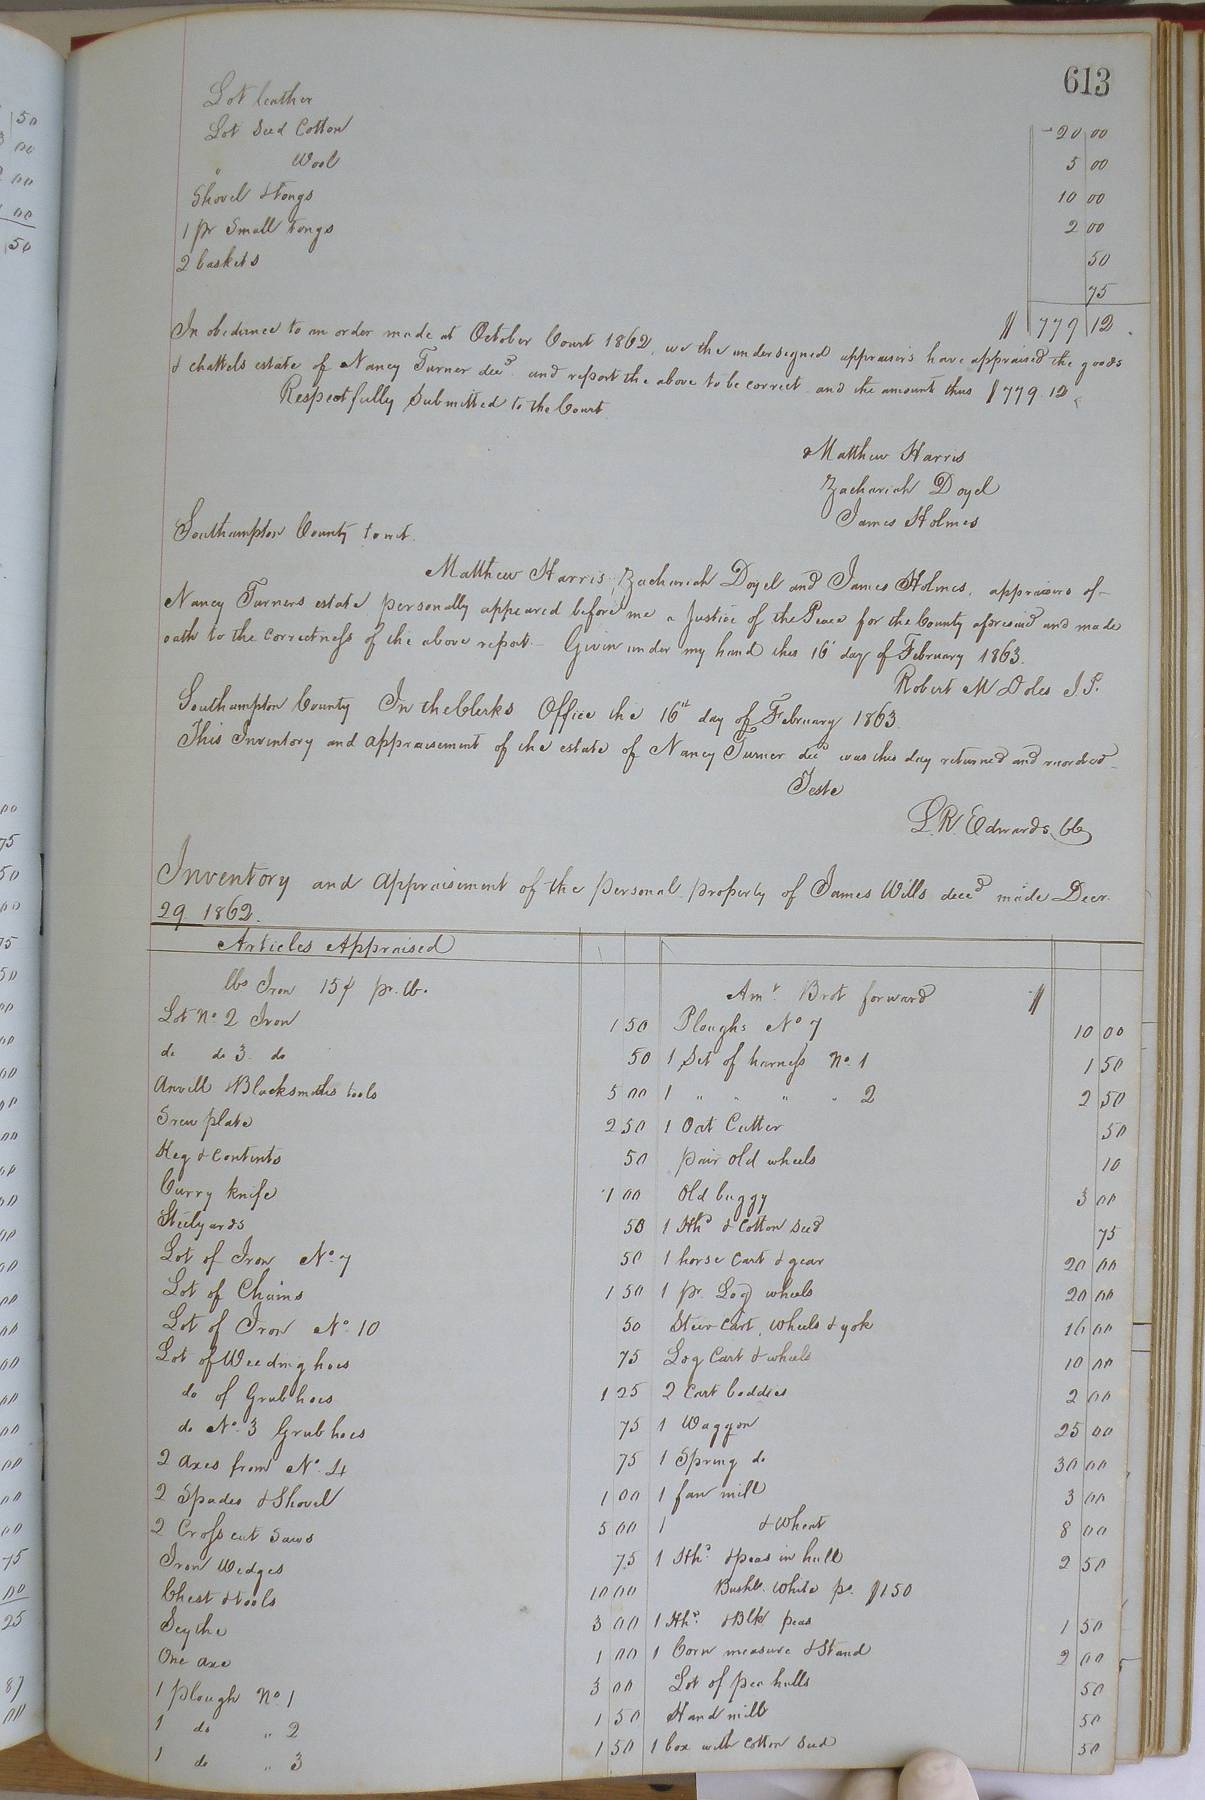 613
Lot leather 20 00
Lot Seed Cotton 5 00
" Wool 10 00
Shovel & tongs 2 00
1 pr Small tongs 50
2 baskets 75
$ 779 12
In obedience to an order made at October Court 1862, we the undersigned appraisers have appraised the goods
& chattels estate of Nancy Turner decd. and report the above to be correct and the amount thus $779.12
Respectfully Submitted to the Court
Matthew Harris
Zachariah Doyel
James Holmes
Southampton County to wit.
Matthew Harris, Zachariah Doyel and James Holmes, appraisers of
Nancy Turners estate personally appeared before me a Justice of the Peace for the County aforesaid and made
oath to the correctness of the above report. Given under my hand this 16 day of February 1863.
Robert M Doles J.P.
Southampton County In the Clerks Office the 16th day of February 1863
This Inventory and appraisement of the estate of Nancy Turner decd was this day returned and recorded
Teste
L.R. Edwards CC
Inventory and Appraisement of the personal property of James Wills decd made Decr.
29 1862.
Articles Appraised
lbs Iron 15¢ pr. lb.
Lot No. 2 Iron 1 50
do do 3 do 50
Anvill & Blacksmiths tools 5 00
Screw plate 2 50
Keg & Contents 50
Curry knife 1 00
Steelyards 50
Lot of Iron No. 7 50
Lot of Chains 1 50
Lot of Iron No. 10 50
Lot of Weeding hoes 75
do of Grub hoes 1 25
do No. 3 Grub hoes 75
2 axes from No. 4 75
2 Spades & Shovel 1 00
2 Cross cut Saws 5 00
Iron Wedges 75
Chest & tools 10 00
Scythe 3 00
One axe 1 00
1 plough No. 1 3 00
1 do " 2 1 50
1 do " 3 1 50
Amt. Brot forward $
Ploughs No 7 10 00
1 Set of harness No. 1 1 50
1 " " " " 2 2 50
1 Oat Cutter 50
pair old wheels 10
Old buggy 3 00
1 Hhd & Cotton Seed 75
1 horse Cart & gear 20 00
1 pr Log wheels 20 00
Steer Cart, wheels & yok 16 00
Log Cart & wheels 10 00
2 Cart boddies 2 00
1 Waggon 25 00
1 Spring do 30 00
1 fan mill 3 00
1 & Wheat 8 00
1 Hhd. & peas in hull 2 50
Bushls. White ps. $1 50
1 Hhd. & Blk peas 1 50
1 Corn measure & Stand 2 00
Lot of pea hulls 50
Hand mill 50
1 box with Cotton Seed 50